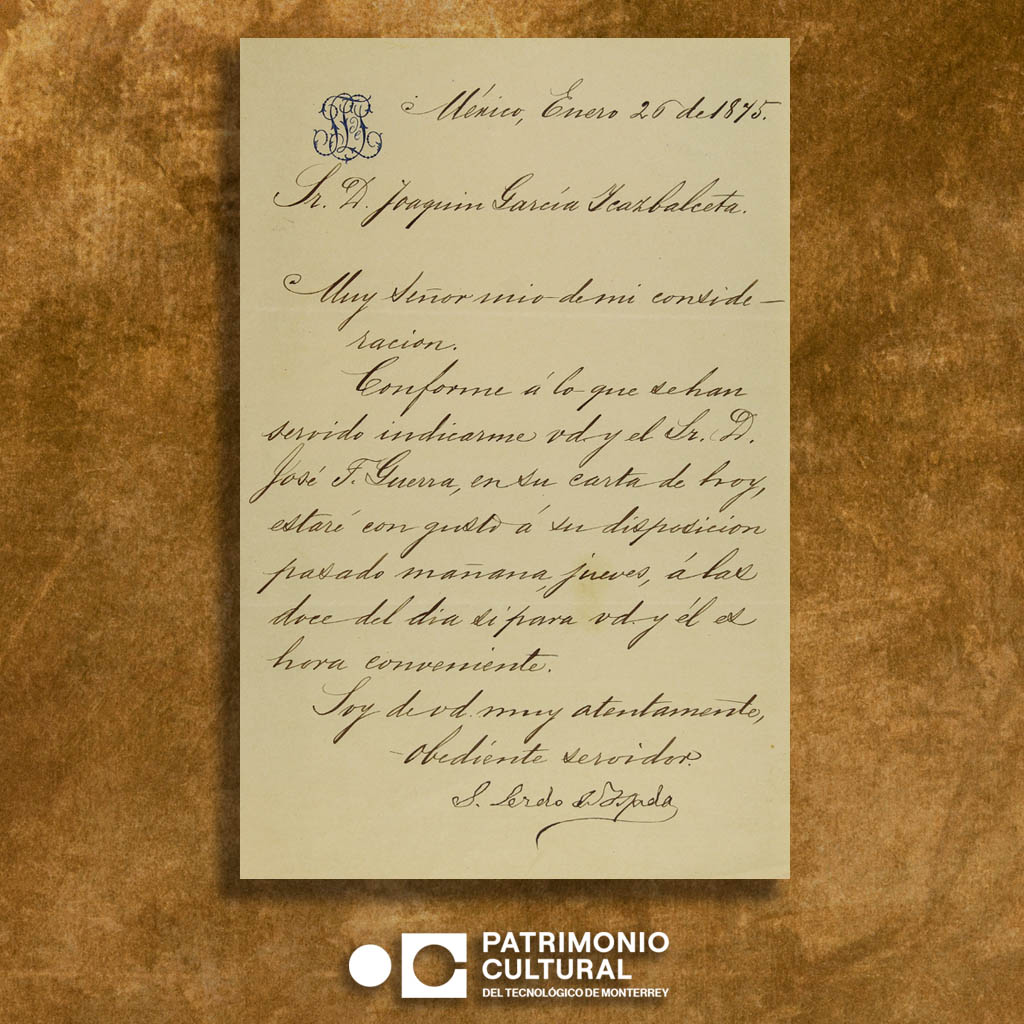 México, Enero 26 de 1875.
Sr. D. Joaquin García Icazbalceta.
Muy señor mio de mi conside-
racion.
Conforme á lo que se han
servido indicarme vd. y el Sr. D.
José F. Guerra, en su carta de hoy,
estaré con gusto á su disposicion
pasado mañana, jueves, á las
doce del dia si para vd. y él es
hora conveniente.
Soy de vd. muy atentamente,
obediente servidor.
S. Lerdo de Tejada
PATRIMONIO
CULTURAL
DEL TECNOLÓGICO DE MONTERREY